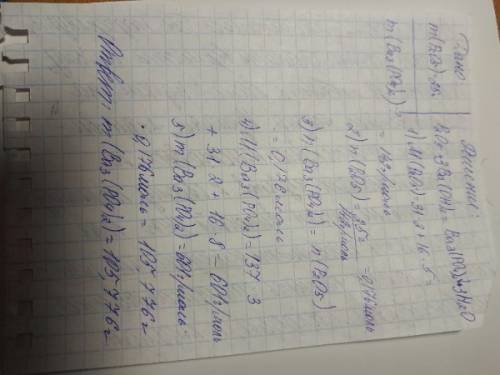 Дано
m(P₂O₅)=25г
m(Ba₃(PO₄)₂)
Решение:
P₂O₅+3Ba(OH)₂=Ba₃(PO₄)₂↓+3H₂O
1) M(P₂O₅)=31·2+16·5=
=142г/моль
2) n(P₂O₅)=25г/142г/моль=0,176моль
3) n(Ba₃(PO₄)₂)=n(P₂O₅)
=0,176моль
4) M(Ba₃(PO₄)₂)=137·3
+31·2+16·8=601г/моль
5) m(Ba₃(PO₄)₂)=601г/моль·
·0,176моль=105,776г
Ответ: m(Ba₃(PO₄)₂)=105,776г